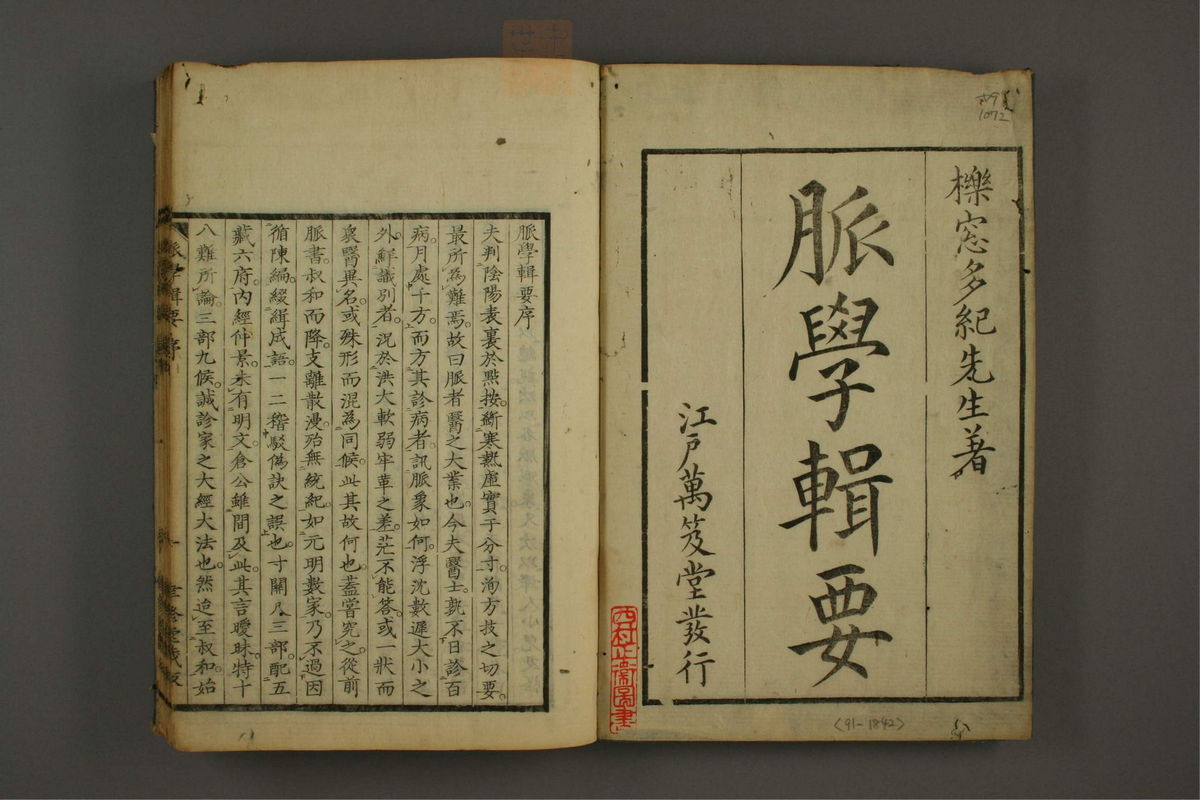 櫟窓多紀先生著
脈學輯要
江戸萬笈堂發行
西村
圖書
〈91-1842〉
1072
脈學輯要序
夫判陰陽表裏於點按斷寒熱虛實于分寸洵方技之切要
最所為難焉故曰脈者醫之大業也今夫醫士孰不日診百
病月處千方而方其診病者訊脈象如何浮沈數遲大小之
外鮮識別者況於洪大軟弱牢革之差茫不能答或一狀而
衆醫異名或殊形而混為同候此其故何也蓋嘗究之從前
脈書叔和而降支離散漫殆無統紀如元明數家乃不過因
循陳編綴緝成語一二稽駁偽訣之誤也寸關尺三部配五
藏六府內經仲景未有明文倉公雖間及此其言曖昧特十
八難所論三部九候誠診家之大經大法也然迨至叔和始
脈學輯要 序